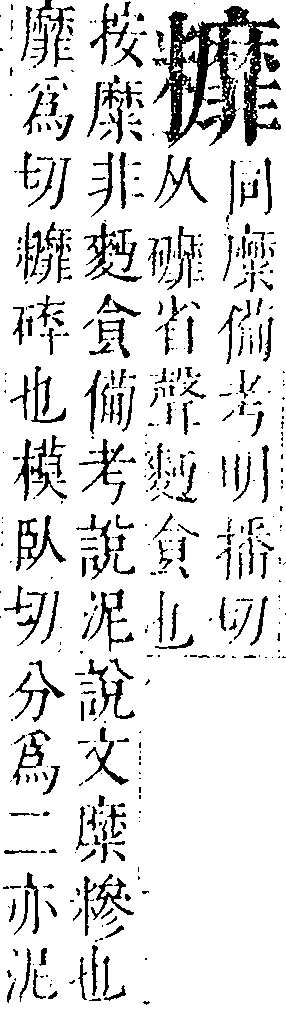 同糜備考明播切
从䃺省聲麪食也
按糜非麪食備考說泥說文糜糝也
靡爲切䊳碎也模臥切分爲二亦泥